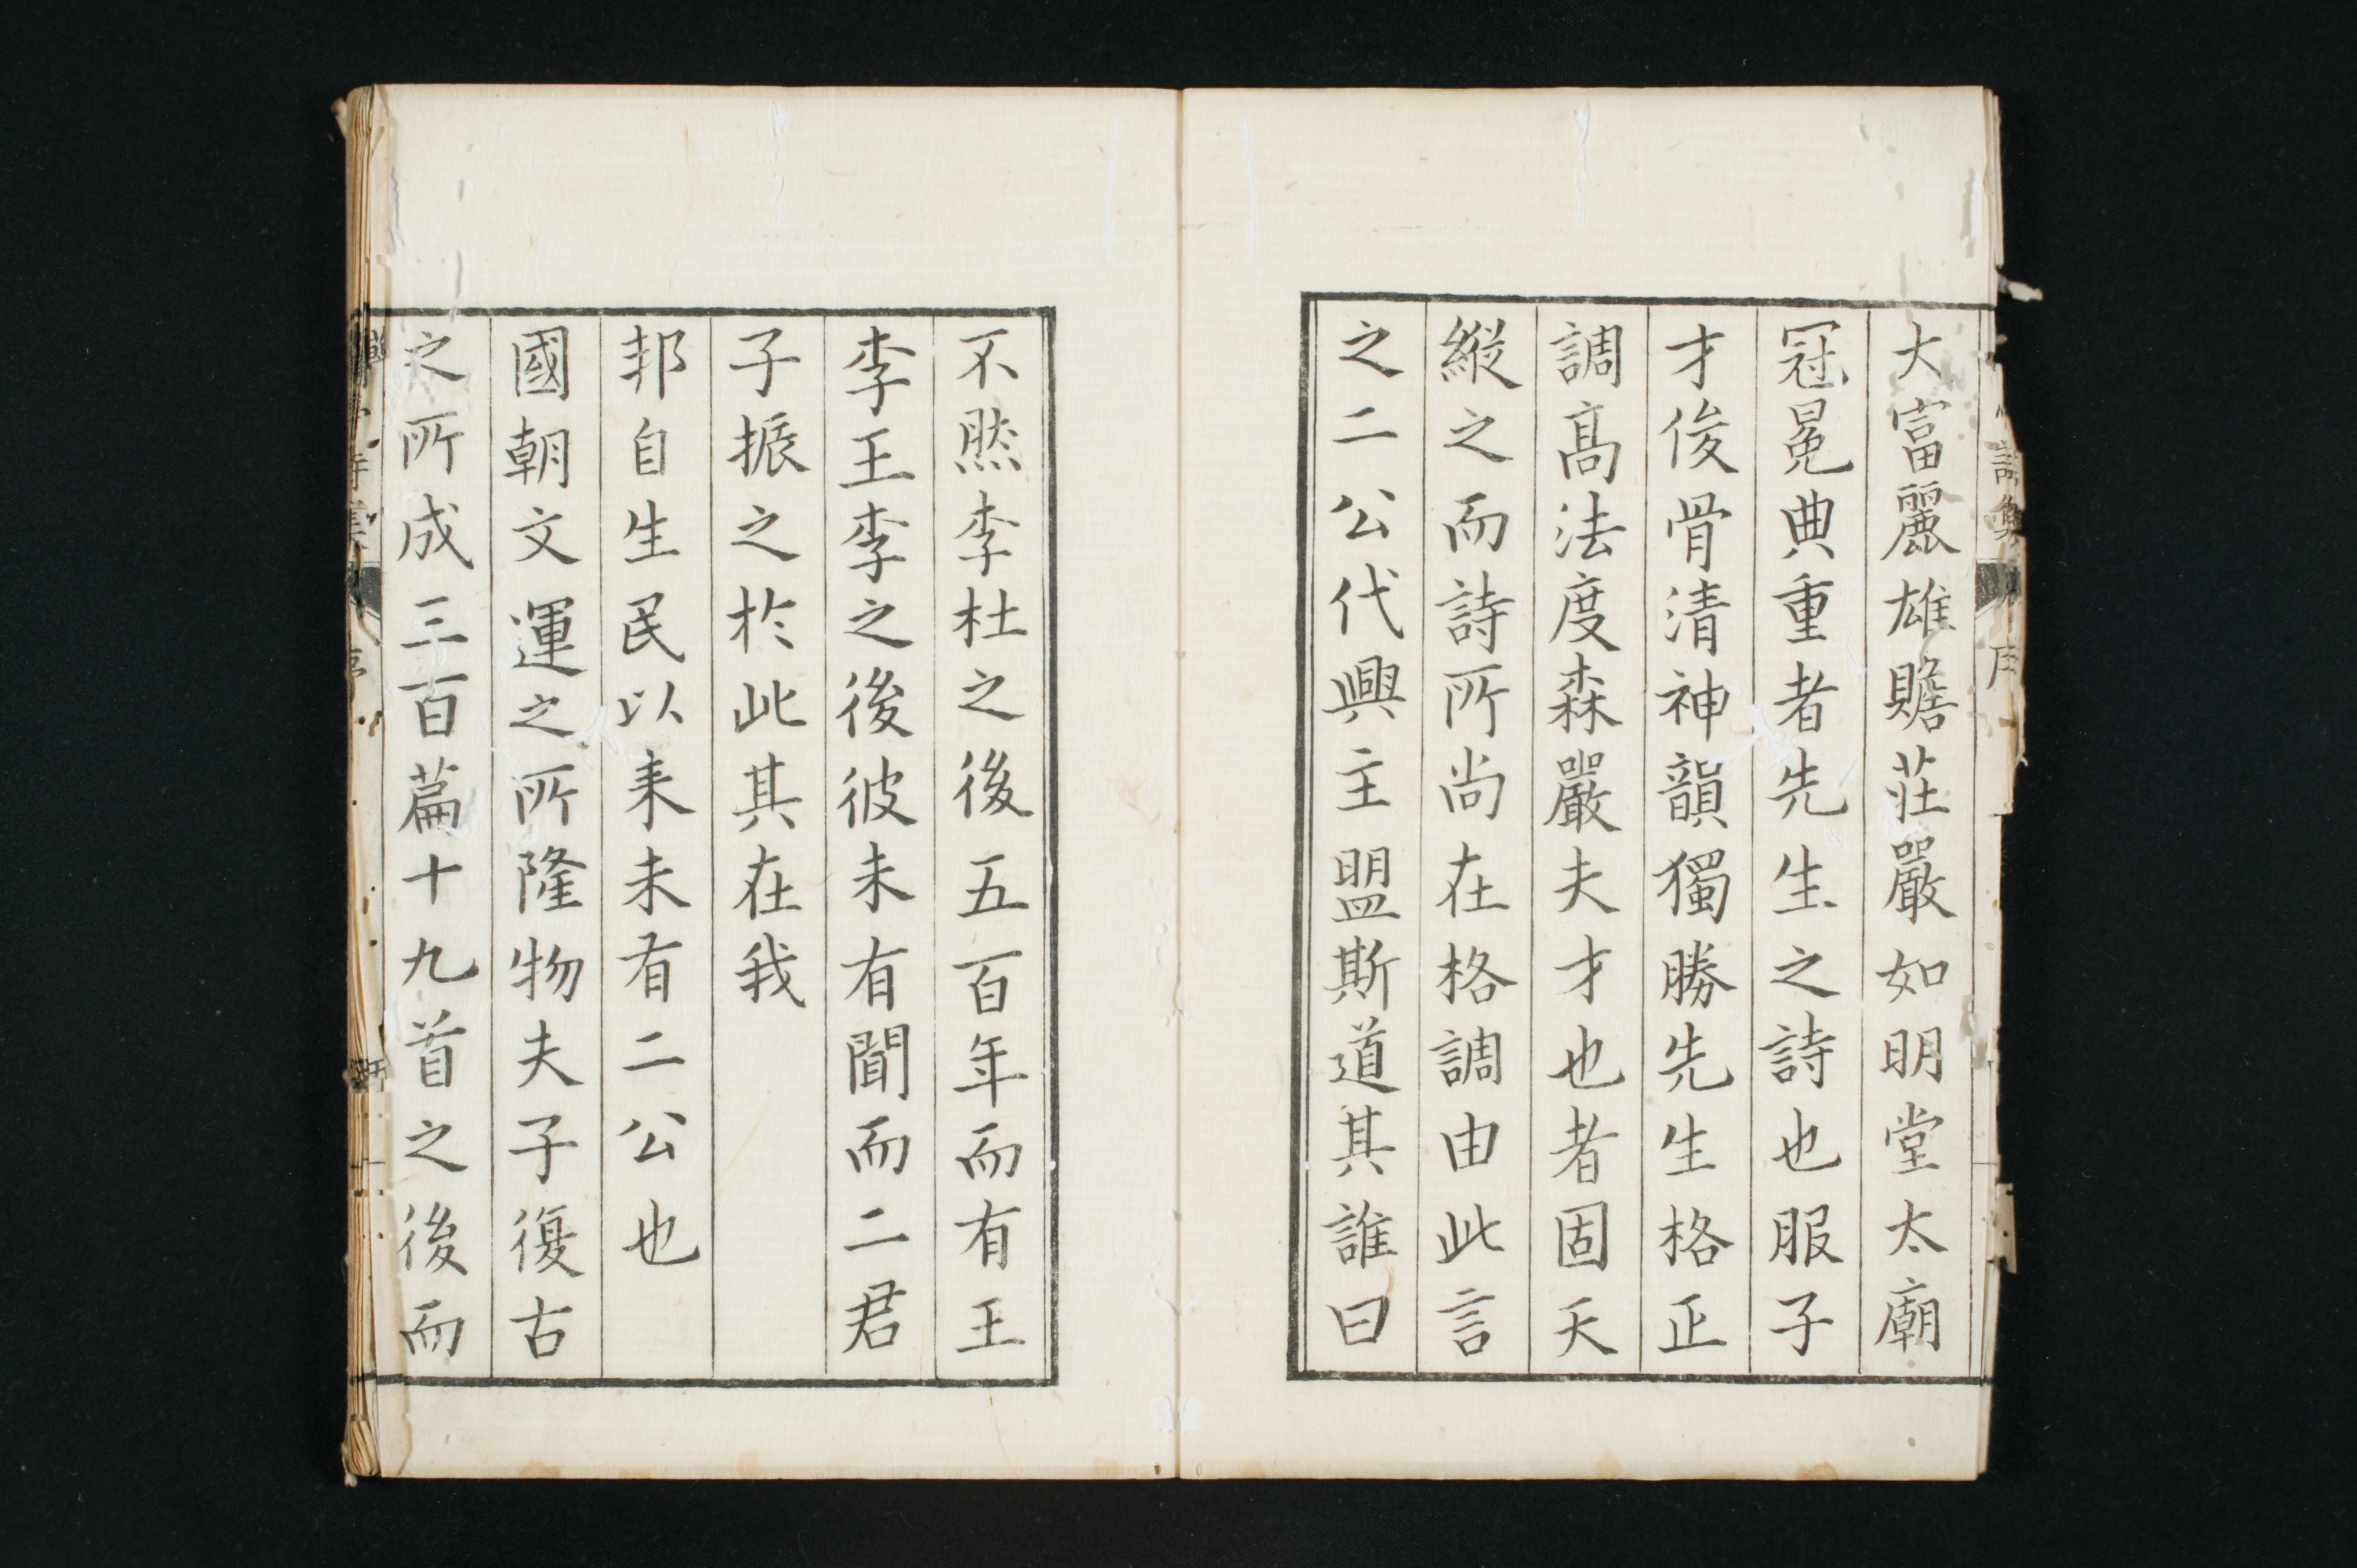 大富麗雄贍莊嚴如明堂太廟
冠冕典重者先生之詩也服子
才俊骨清神韻獨勝先生格正
調髙法度森嚴夫才也者固天
縱之而詩所尚在格調由此言
之二公代興主盟斯道其誰曰
不然李杜之後五百年而有王
李王李之後彼未有聞而二君
子振之於此其在我
邦自生民以来未有二公也
國朝文運之所隆物夫子復古
之所成三百篇十九首之後而